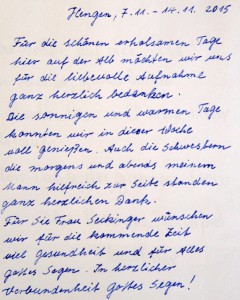 Hengen, 7.11. - 14.11. 2015
Für die schönen erholsamen Tage
hier auf der Alb möchten wir uns
für die liebevolle Aufnahme
ganz herzlich bedanken.
Die sonnigen und warmen Tage
konnten wir in dieser Woche
voll genießen. Auch die Schwestern
die morgens und abends meinem
Mann hilfreich zur Seite standen
ganz herzlichen Dank.
Für Sie Frau Seikinger wünschen
wir für die kommende Zeit
viel Gesundheit und für Alles
Gottes Segen. In herzlicher
Verbundenheit Gottes Segen!